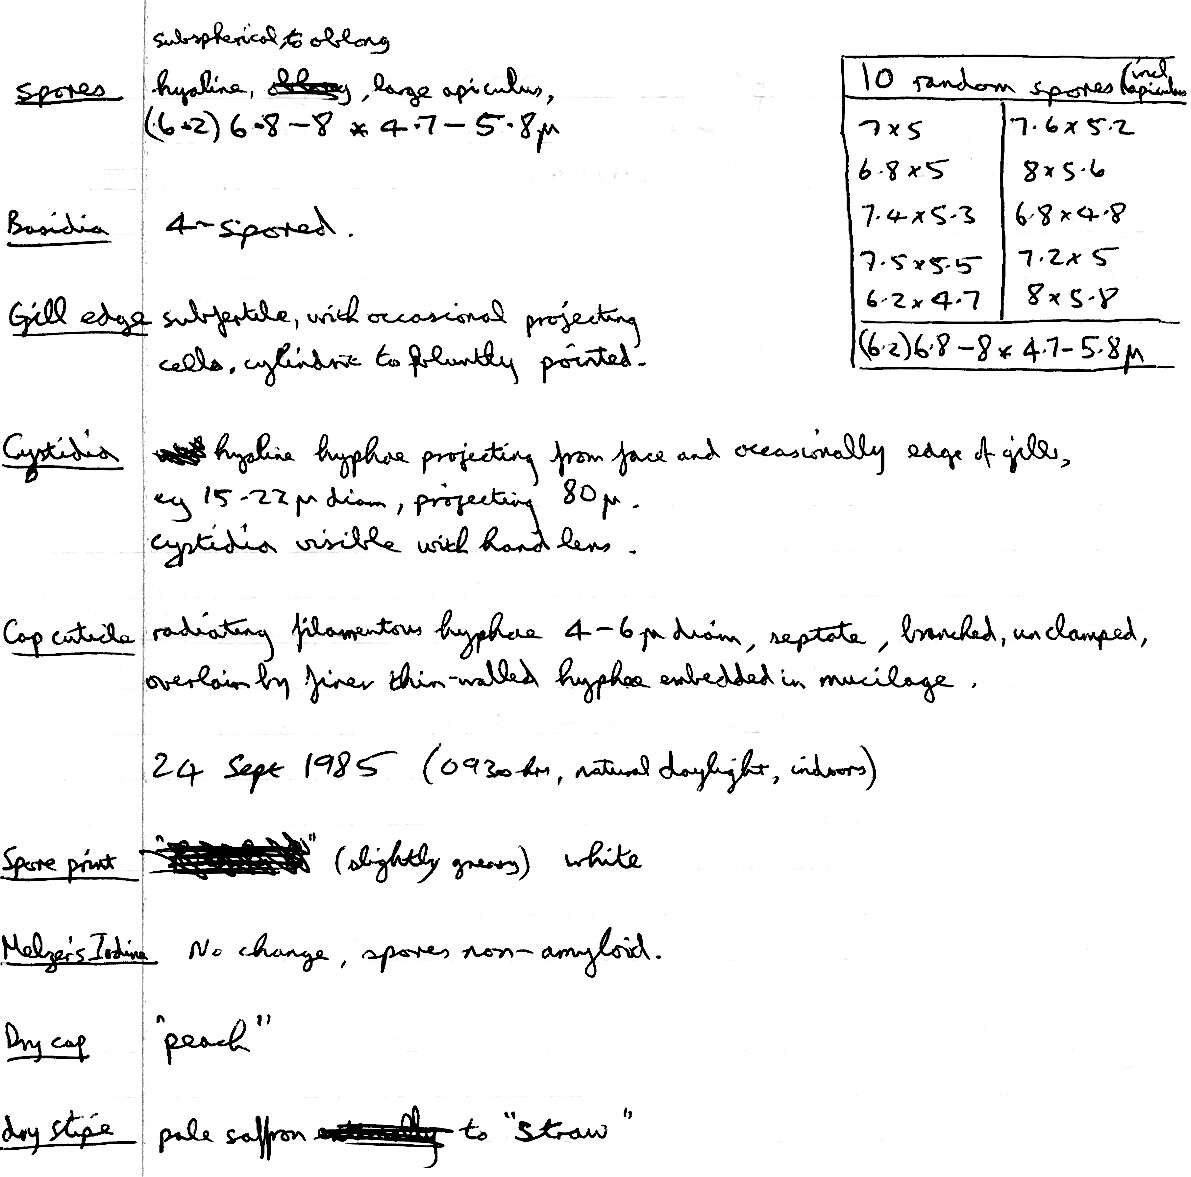 subspherical, to oblong
Spores hyaline, oblong, large apiculus,
(6.2) 6.8 - 8 × 4.7 - 5.8 μ
10 random spores (incl apiculus
7 × 5 7.6 × 5.2
6.8 × 5 8 × 5.6
7.4 × 5.3 6.8 × 4.8
7.5 × 5.5 7.2 × 5
6.2 × 4.7 8 × 5.8
(6.2) 6.8 - 8 × 4.7 - 5.8 μ
Basidia 4-spored.
Gill edge subfertile, with occasional projecting
cells, cylindric to bluntly pointed.
Cystidia hyaline hyphae projecting from face and occasionally edge of gills,
eg 15-22 μ diam, projecting 80 μ.
cystidia visible with hand lens.
Cap cuticle radiating filamentous hyphae 4-6 μ diam, septate, branched, unclamped,
overlain by finer thin-walled hyphae embedded in mucilage.
24 Sept 1985 (0930 hrs, natural daylight, indoors)
Spore print " " (slightly greasy) white
Melzer's Iodine No change, spores non-amyloid.
Dry cap "peach"
dry stipe pale saffron externally to "straw"